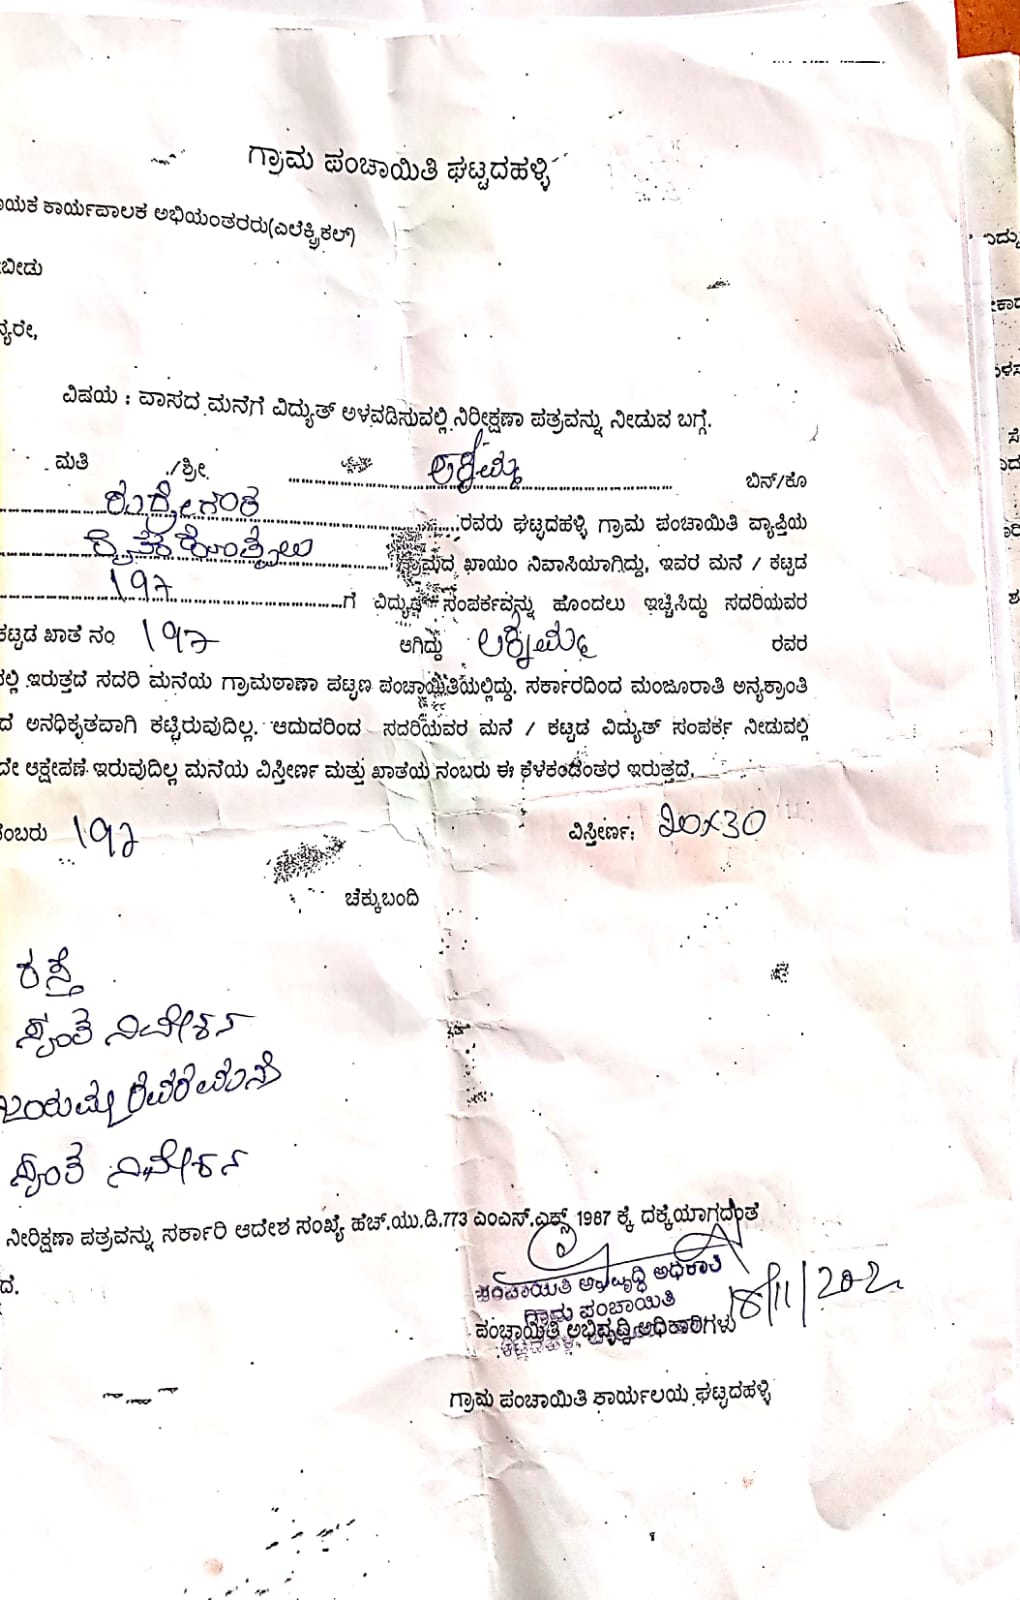 ಗ್ರಾಮ ಪಂಚಾಯಿತಿ ಘಟ್ಟದಹಳ್ಳಿ
ಯಕ ಕಾರ್ಯಪಾಲಕ ಅಭಿಯಂತರರು(ಎಲೆಕ್ಟ್ರಿಕಲ್)
ಬೀಡು
ನ್ಯರೇ,
ವಿಷಯ : ವಾಸದ ಮನೆಗೆ ವಿದ್ಯುತ್ ಅಳವಡಿಸುವಲ್ಲಿ ನಿರೀಕ್ಷಣಾ ಪತ್ರವನ್ನು ನೀಡುವ ಬಗ್ಗೆ.
ಮತಿ /ಶ್ರೀ ಬಿನ್/ಕೊ
ರವರು ಘಟ್ಟದಹಳ್ಳಿ ಗ್ರಾಮ ಪಂಚಾಯಿತಿ ವ್ಯಾಪ್ತಿಯ
ಗ್ರಾಮದ ಖಾಯಂ ನಿವಾಸಿಯಾಗಿದ್ದು, ಇವರ ಮನೆ / ಕಟ್ಟಡ
197 ಗೆ ವಿದ್ಯುತ್ ಸಂಪರ್ಕವನ್ನು ಹೊಂದಲು ಇಚ್ಚಿಸಿದ್ದು ಸದರಿಯವರ
ಕಟ್ಟಡ ಖಾತೆ ನಂ 197 ಆಗಿದ್ದು ರವರ
ಲ್ಲಿ ಇರುತ್ತದೆ ಸದರಿ ಮನೆಯ ಗ್ರಾಮಠಾಣಾ ಪಟ್ಟಣ ಪಂಚಾಯಿತಿಯಲ್ಲಿದ್ದು. ಸರ್ಕಾರದಿಂದ ಮಂಜೂರಾತಿ ಅನ್ಯಕ್ರಾಂತಿ
ದೆ ಅನಧಿಕೃತವಾಗಿ ಕಟ್ಟಿರುವುದಿಲ್ಲ. ಆದುದರಿಂದ ಸದರಿಯವರ ಮನೆ / ಕಟ್ಟಡ ವಿದ್ಯುತ್ ಸಂಪರ್ಕ ನೀಡುವಲ್ಲಿ
ದೇ ಆಕ್ಷೇಪಣೆ ಇರುವುದಿಲ್ಲ ಮನೆಯ ವಿಸ್ತೀರ್ಣ ಮತ್ತು ಖಾತೆಯ ನಂಬರು ಈ ಕೆಳಕಂಡಂತರ ಇರುತ್ತದೆ.
ನಂಬರು 197 ವಿಸ್ತೀರ್ಣ: 20x30
ಚೆಕ್ಕುಬಂದಿ
ರಸ್ತೆ
ಸ್ವಂತ ನಿವೇಶನ
ಜಯಮ್ಮ ರವರ ಮನೆ
ಸ್ವಂತ ನಿವೇಶನ
ನೀರಿಕ್ಷಣಾ ಪತ್ರವನ್ನು ಸರ್ಕಾರಿ ಆದೇಶ ಸಂಖ್ಯೆ ಹೆಚ್.ಯು.ಡಿ.773 ಎಂಎಸ್.ಎಕ್ಸ್ 1987 ಕ್ಕೆ ದಕ್ಕೆಯಾಗದಂತೆ
ದೆ.
ಪಂಚಾಯಿತಿ ಅಭಿವೃದ್ಧಿ ಅಧಿಕಾರಿ
ಗ್ರಾಮ ಪಂಚಾಯಿತಿ
ಪಂಚಾಯಿತಿ ಅಭಿವೃದ್ದಿ ಅಧಿಕಾರಿಗಳು
ಗ್ರಾಮ ಪಂಚಾಯಿತಿ ಕಾರ್ಯಲಯ ಘಟ್ಟದಹಳ್ಳಿ